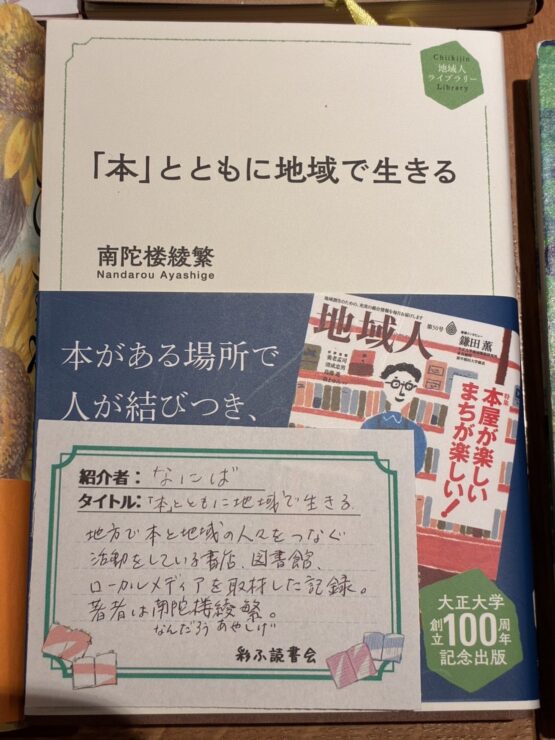 Chiikijin
地域人
ライブラリー
Library
「本」とともに地域で生きる
南陀楼綾繁
Nandarou Ayashige
本がある場所で
人が結びつき、
地域人
第50号
鎌田 薫
養老孟司
特集
本屋が楽しい
まちが楽しい!
大正大学
創立100周年
記念出版
紹介者: なにば
タイトル: 「本」とともに地域で生きる
地方で本と地域の人々をつなぐ
活動をしている書店、図書館、
ローカルメディアを取材した記録。
著者は南陀楼綾繁。
なんだろう あやしげ
彩ふ読書会